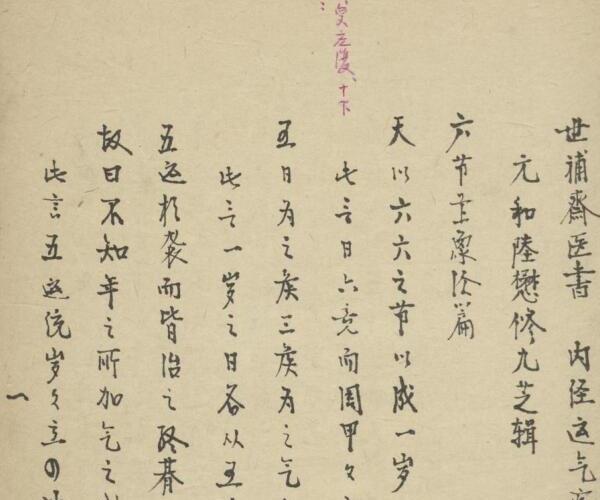 世補齋医書　内径运气病
元和陸懋修九芝辑
六节藏象论篇
天以六六之节以成一岁
此言日六竟而周甲々
五日为之矦三矦为之气
此言一岁之日各从五
五运相袭而皆治之终朞
故曰不知年之所加气之
此言五运统岁々立
一